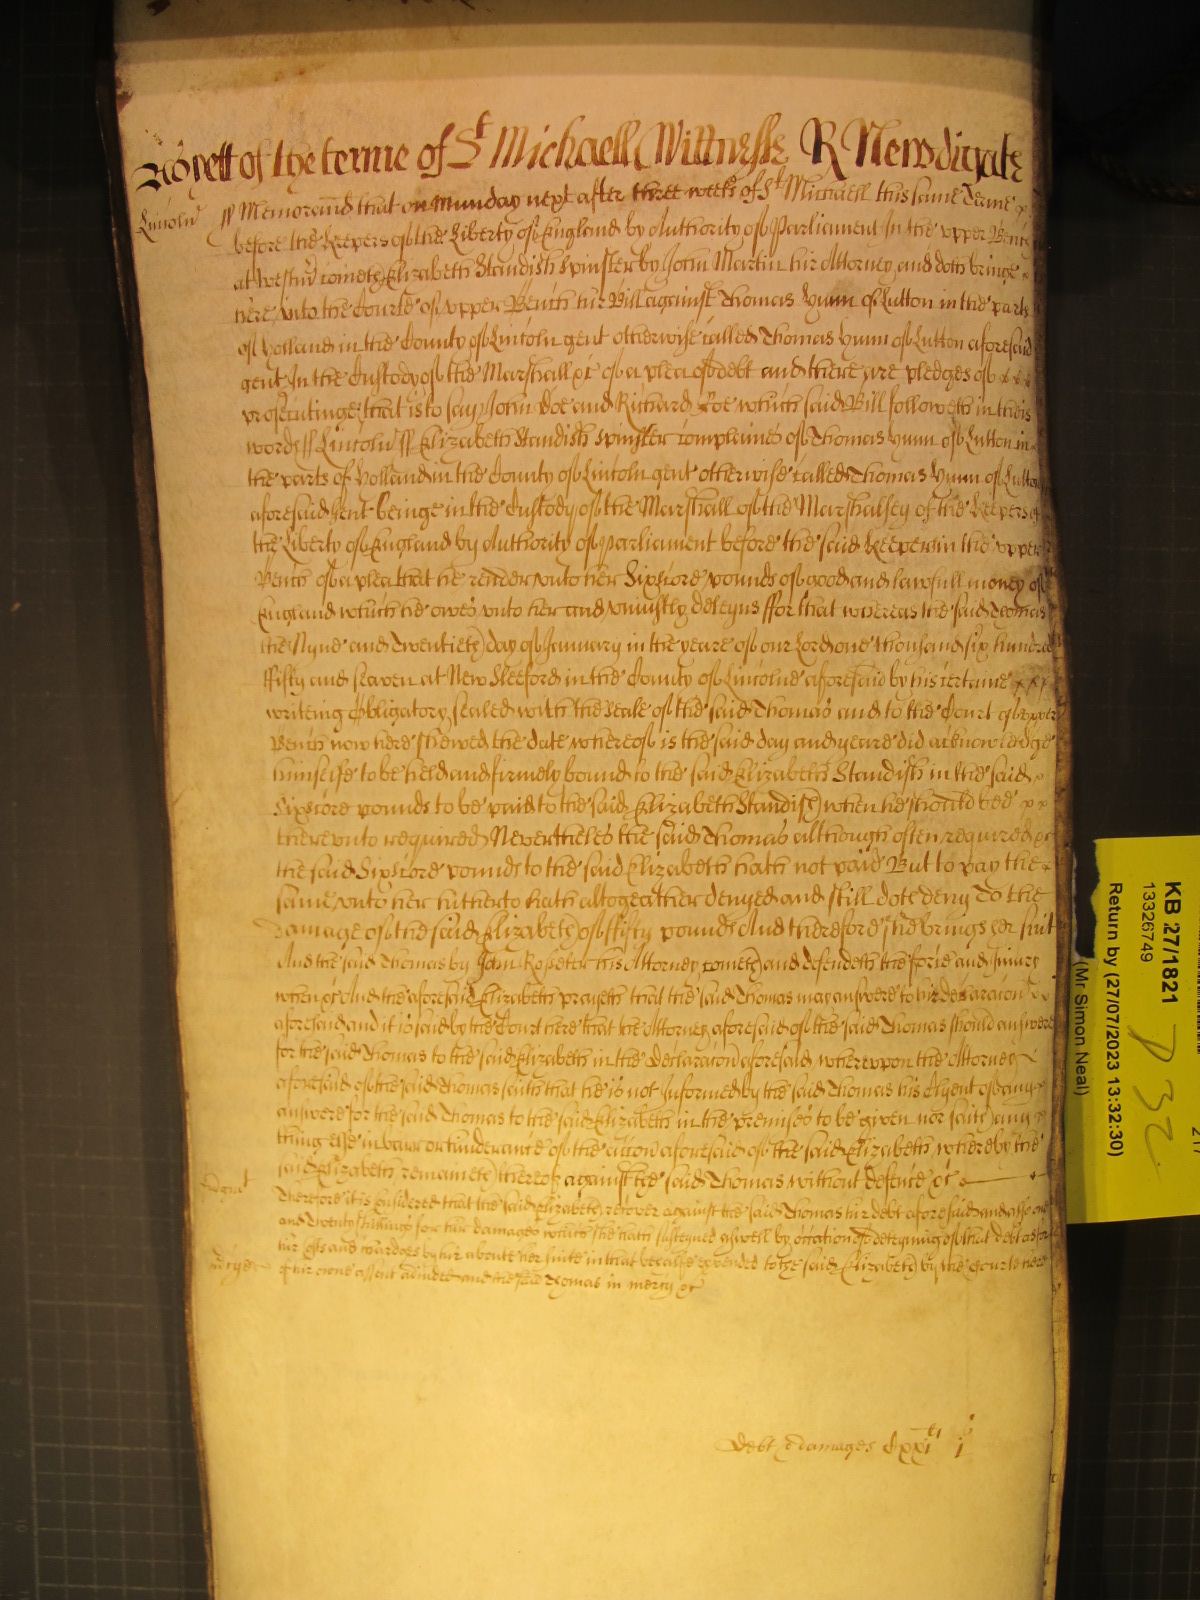 Yet of the terme of St Michaell Wittnesse R Newdigate
Lincoln ss Memorand that on Munday next after three weeks of St Michaell this same Terme x
before the Keepers of the Liberty of England by Authority of Parliament In the vpper Bench
at Westmr cometh Elizabeth Standish Spinster by John Martin hir Attorney and doth bringe x
here vnto the Courte of vpper Bench hir Bill against Thomas Hunn of Lutton in the parts
of Holland in the County of Lincoln gent otherwise called Thomas Hunn of Lutton aforesaid
gent In the Custody of the Marshall &c of a plea of debt and there are pledges of x x x
prosecutinge that is to say John Doe and Richard Roe which said Bill followeth in theis
words ss Lincoln ss Elizabeth Standish Spinster complaines of Thomas Hunn of Lutton in
the parts of Holland in the County of Lincoln gent otherwise called Thomas Hunn of Lutton
aforesaid gent beinge in the Custody of the Marshall of the Marshalsey of the Keepers of
the Liberty of England by Authority of Parliament before the said Keepers in the vpper
Bench of a plea that he render vnto her Sixscore pounds of good and lawfull money of
England which he owes vnto her and vniustly deteyns ffor that whereas the said Thomas
the Nyne and Twentieth day of January in the yeare of our Lord one thousand six hundred
ffifty and seaven at New Sleeford in the County of Lincolne aforesaid by his certaine x x x
writeing Obligatory sealed with the seale of the said Thomas and to the Court of vpper
Bench now here shewed the date whereof is the said day and yeare did acknowledge
himselfe to be held and firmely bound to the said Elizabeth Standish in the said x
Sixscore pounds to be paid to the said Elizabeth Standish when he should bee x x
therevnto required Nevertheles the said Thomas although often required &c
the said Sixscore pounds to the said Elizabeth hath not paid But to pay the x
same vnto her hitherto hath altogeather denyed and still doth deny To the
damage of the said Elizabeth of ffifty pounds And therefore she brings her suit
And the said Thomas by John Rosseter his Attorney cometh and defendeth the force and Iniury
when &c And the aforesaid Elizabeth prayeth that the said Thomas may answere to hir declaracon
aforesaid and it is said by the Court here that the Attorney aforesaid of the said Thomas should answere
for the said Thomas to the said Elizabeth in the declaracon aforesaid wherevpon the Attorney
aforesaid of the said Thomas saith that he is not Informed by the said Thomas his Clyent of any x
answere for the said Thomas to the said Elizabeth in the premises to be given nor saith any x
thing else in barr or hinderance of the accon aforesaid of the said Elizabeth whereby the
said Elizabeth remaineth thereof against the said Thomas without defence &c
Therefore it is Considered that the said Elizabeth recover against the said Thomas hir debt aforesaid and also one
and Twenty shillings for hir damages which she hath susteyned aswell by occation of deteyning of that debt as for
hir costs and chardges by hir about her suite in that behalfe expended to the said Elizabeth by the Courte here
of hir owne assent adiudged and the said Thomas in mercy &c
Debt & damages Cxxi li i s
KB 27/1821
13326749
Return by (27/07/2023 13:32:30)
(Mr Simon Neal)